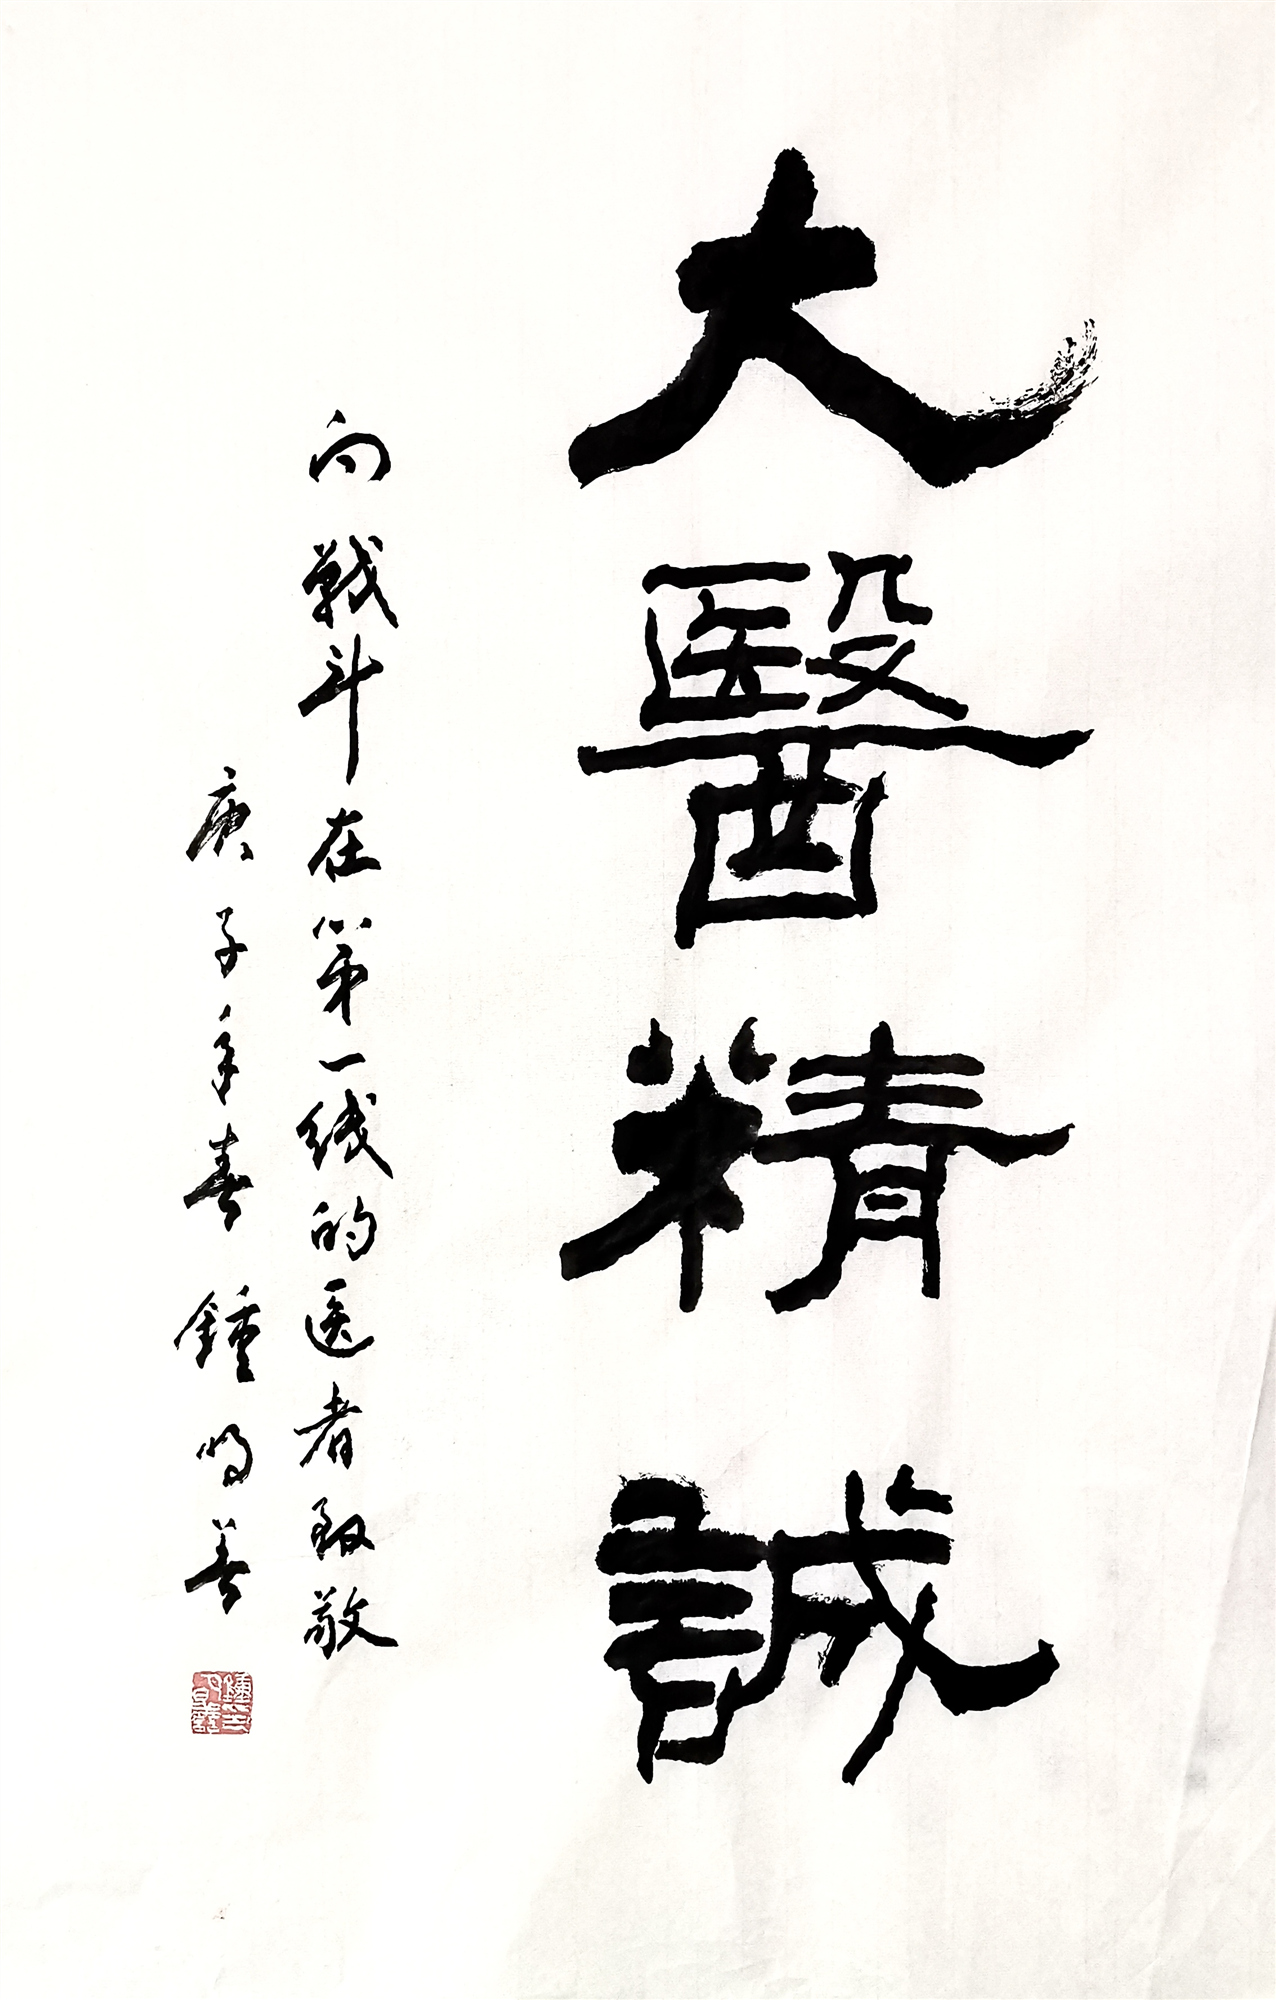 大醫精誠
向戰斗在第一线的医者致敬
庚子年春 鍾鸣善